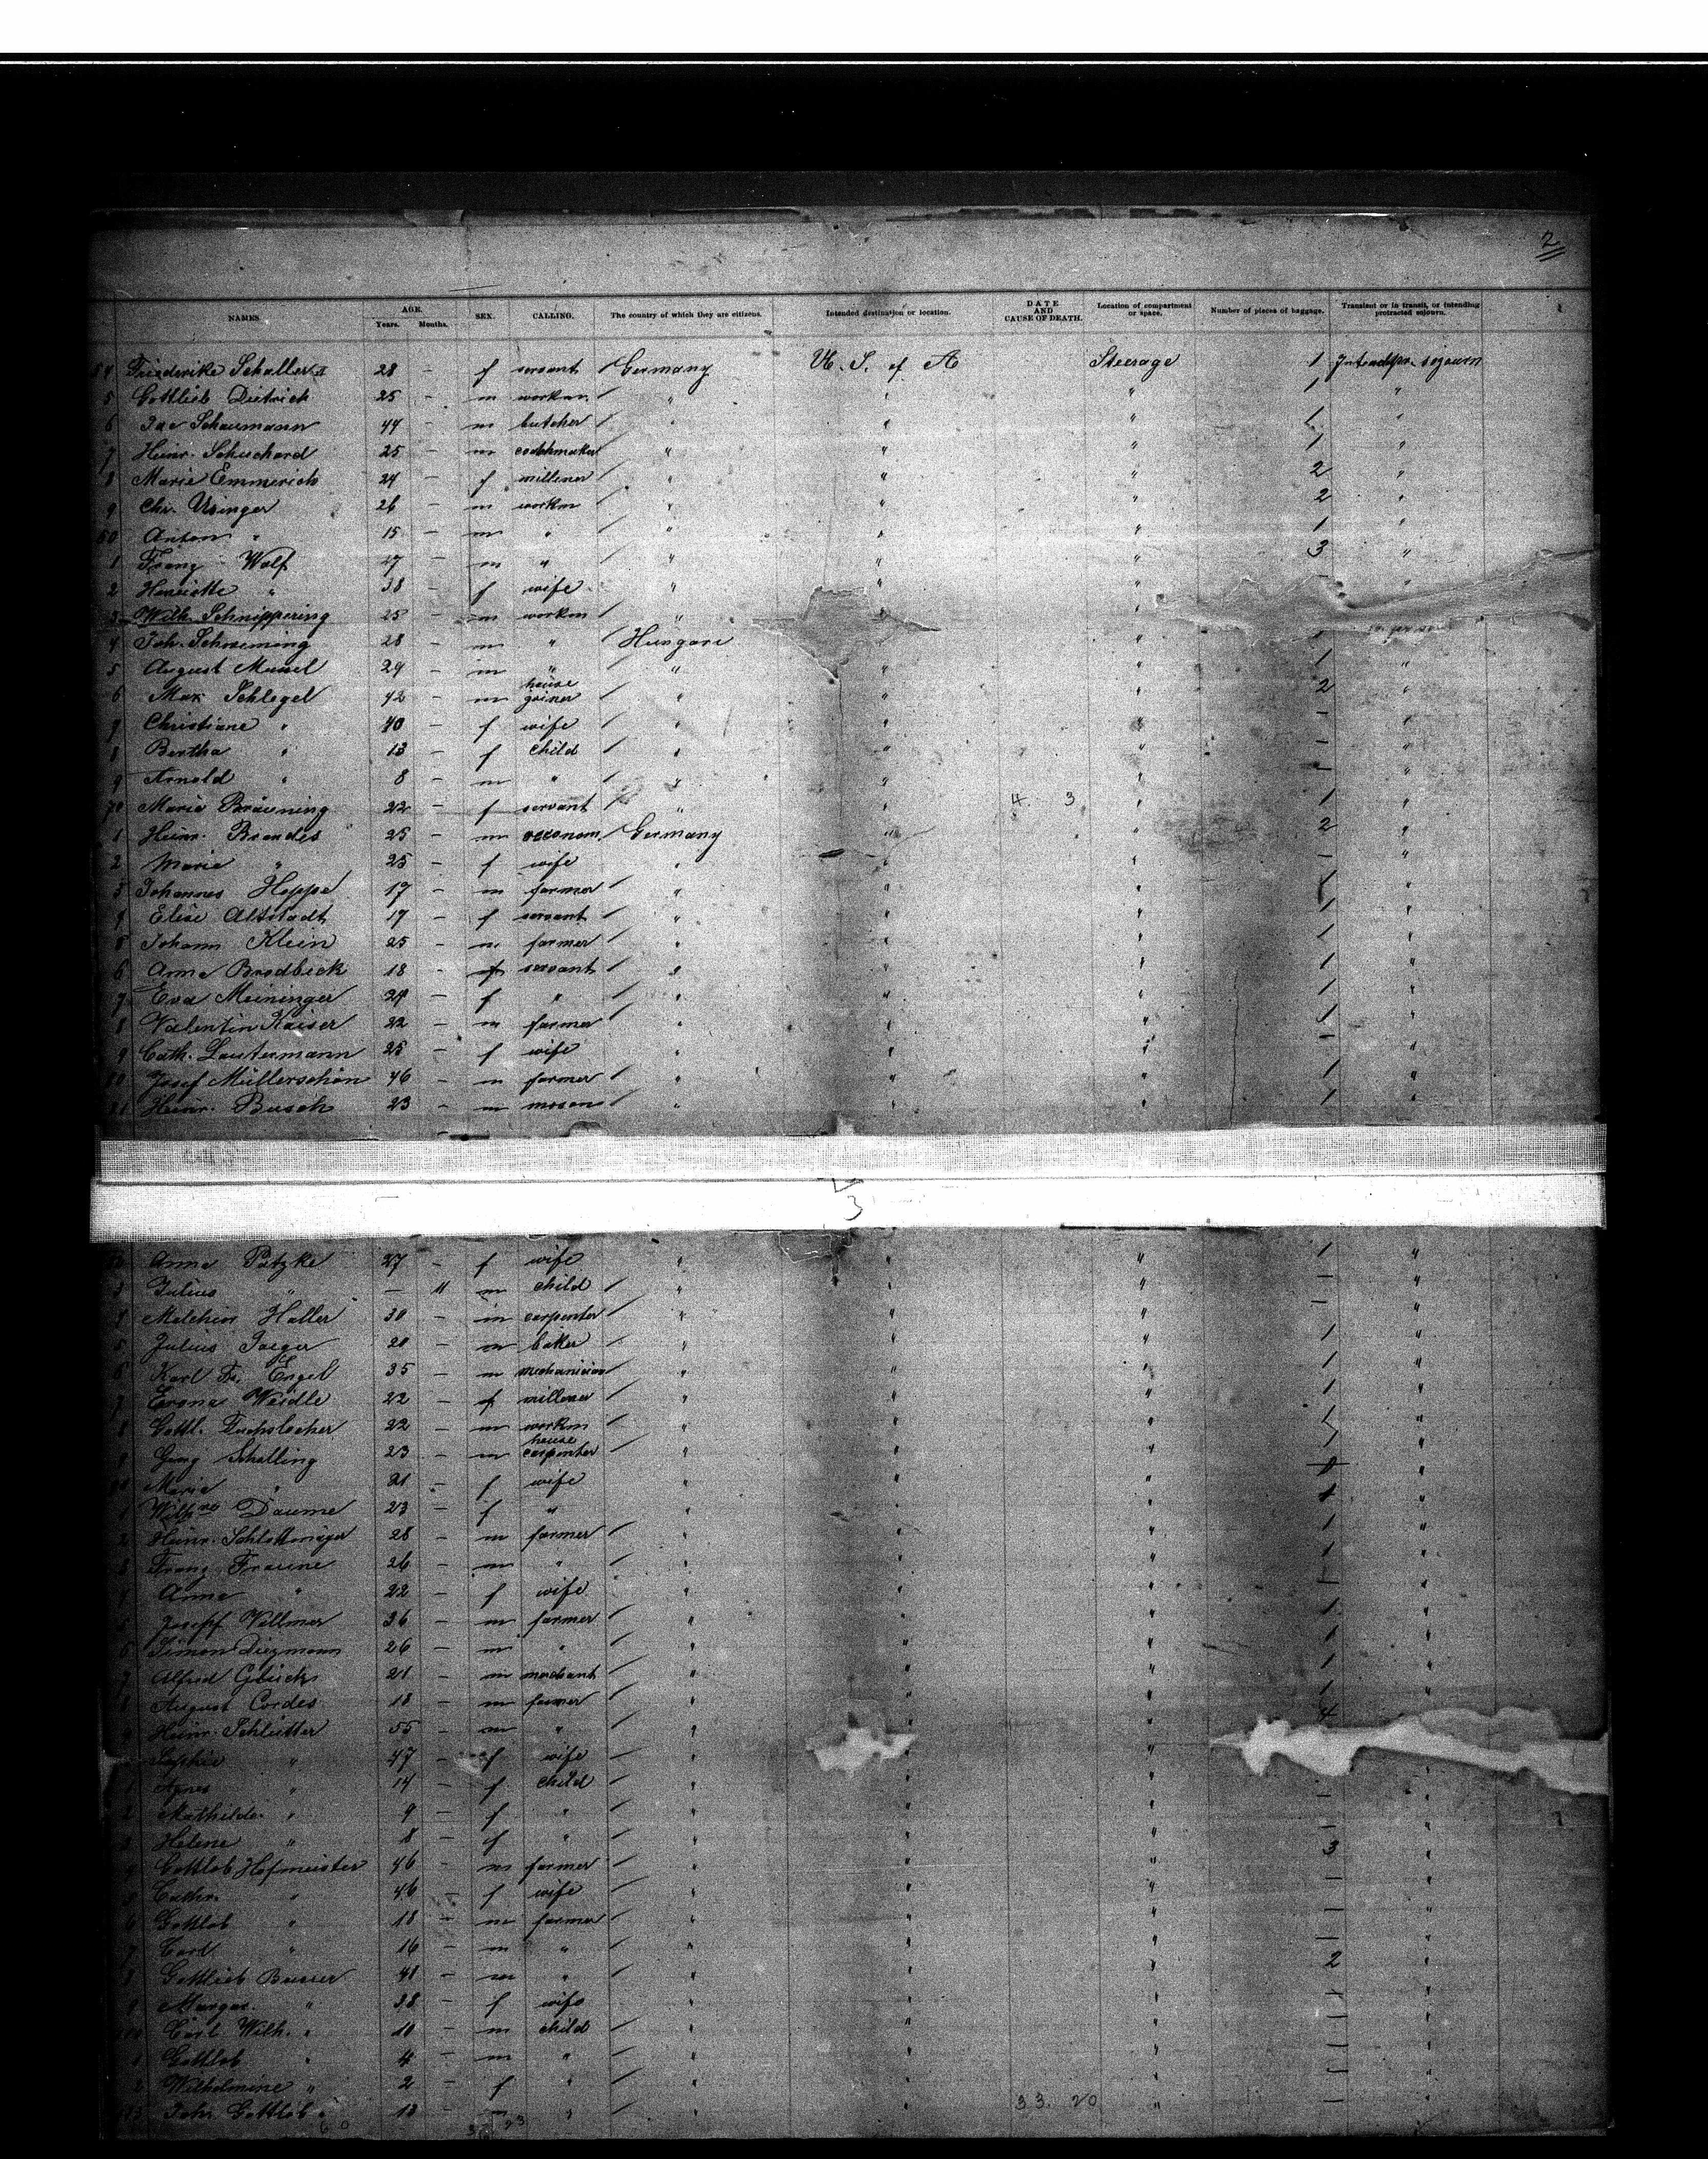 2
NAMES. AGE. Years. Months. SEX. CALLING. The country of which they are citizens. Intended destination or location. DATE AND CAUSE OF DEATH. Location of compartment or space. Number of pieces of baggage. Transient or in transit, or intending protracted sojourn.
54 Friederike Schaller 28 — f servant Germany U. S. of A Steerage 1 sojourn
5 Gottlieb Dietrich 25 — m workm " " " 1 "
6 Schaumann 44 — m butcher " " " "
7 Heinr. Schuchard 25 — m " " " 1 "
8 Marie Emmerich 24 — f milliner " " " 2 "
9 Chr. Usinger 26 — m workm " " " 2 "
60 Anton " 15 — m " " " " 1 "
1 Franz Wolf — m " " " " 3 "
2 Henriette " 38 — f wife " " " — "
3 Wilh. Schnippering 25 — m workm " " "
4 Joh. 28 — m " Hungari " "
5 August 29 — m " " " " 1 "
6 Max Schlegel 42 — m house " " " 2 "
7 Christiane " 40 — f wife " " " — "
8 Bertha " 13 — f child " " " — "
9 Arnold " 8 — m " " " " — "
70 Marie Bräuning 22 — f servant " " 4. 3 " 1 "
1 Heinr. Brandes 25 — m oeconom Germany " " 2 "
2 Marie " 25 — f wife " " " — "
3 Johannes Hoppe 17 — m farmer " " " 1 "
4 Elise Altstadt 17 — f servant " " " 1 "
5 Johann Klein 25 — m farmer " " " 1 "
6 Anna Brodbeck 18 — f servant " " " 1 "
7 Eva Meininger 24 — f " " " " 1 "
8 Valentin Kaiser 22 — m farmer " " " 1 "
9 Cath. Lautermann 25 — f wife " " " — "
80 Josef Müllerschön 46 — m farmer " " " 1 "
81 Heinr. Busch 23 — m " " " 1 "
3
Anna Patzke 27 — f wife " " " 1 "
3 Julius " — 11 m child " " " — "
4 Melchior Haller 30 — m carpenter " " " — "
5 Julius Jaeger 20 — m baker " " " 1 "
6 Karl Fr. Engel 35 — m mechanician " " " 1 "
7 Weidle 22 — f milliner " " " 1 "
8 Gottl. Fuchslocher 22 — m workm " " " 1 "
9 Georg Schelling 23 — m house carpenter " " " 1 "
Maria " 21 — f wife " " " "
1 Daume 23 — f " " " " 1 "
2 Heinr. 28 — m farmer " " " 1 "
3 Franz Fraune 26 — m " " " " 1 "
4 Anna " 22 — f wife " " " — "
5 Josepf Vollmer 36 — m farmer " " " 1 "
6 Simon Diezmann 26 — m " " " " 1 "
7 Alfred Glück 21 — m merchant " " " 1 "
8 August Cordes 18 — m farmer " " " 1 "
9 Heinr. Schlütter 55 — m " " " " 4
Sophie " 47 — f wife " "
1 Agnes " 14 — f child " " " "
2 Mathilde " 9 — f " " " " — "
3 Helene " 8 — f " " " " — "
4 Gottlob Hofmeister 46 — m farmer " " " 3 "
5 Cathr. " 46 — f wife " " " — "
6 Gottlob " 18 — m farmer " " " — "
7 Carl " 16 — m " " " " — "
8 Gottlieb 41 — m " " " " 2 "
9 Margar. " 38 — f wife " " " — "
Carl Wilh. " 10 — m child " " " — "
1 Gottlob " 4 — m " " " " — "
2 Wilhelmine " 2 — f " " " " — "
Joh. Gottlob " — m " " 33. 20 " — "